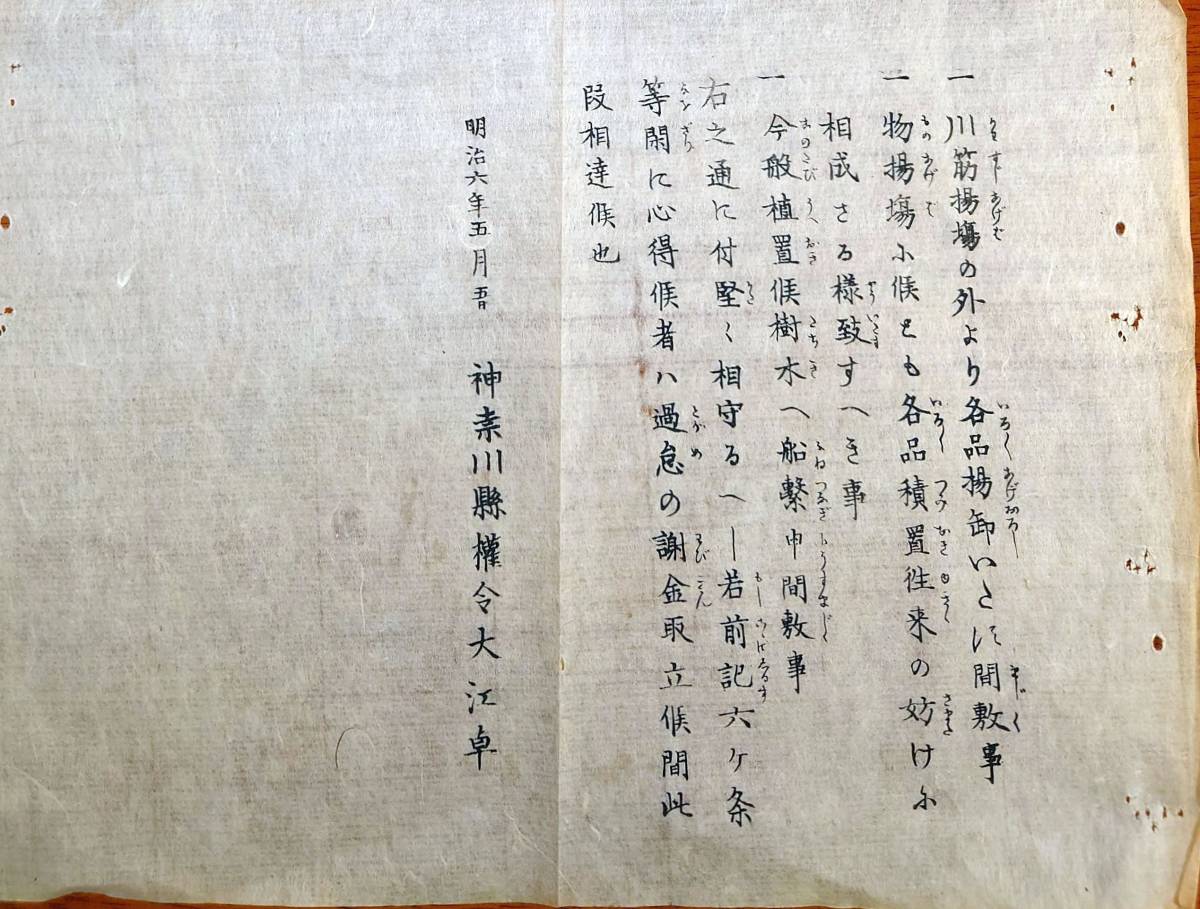 一 川筋揚場の外より各品揚卸いたし間敷事
一 物揚場ニ候とも各品積置往来の妨けに
相成さる様致すへき事
一 今般植置候樹木へ船繋申間敷事
右之通に付堅く相守るへし若前記六ケ条
等閑に心得候者ハ過怠の謝金取立候間此
段相達候也
明治六年五月五日 神奈川縣權令大江卓